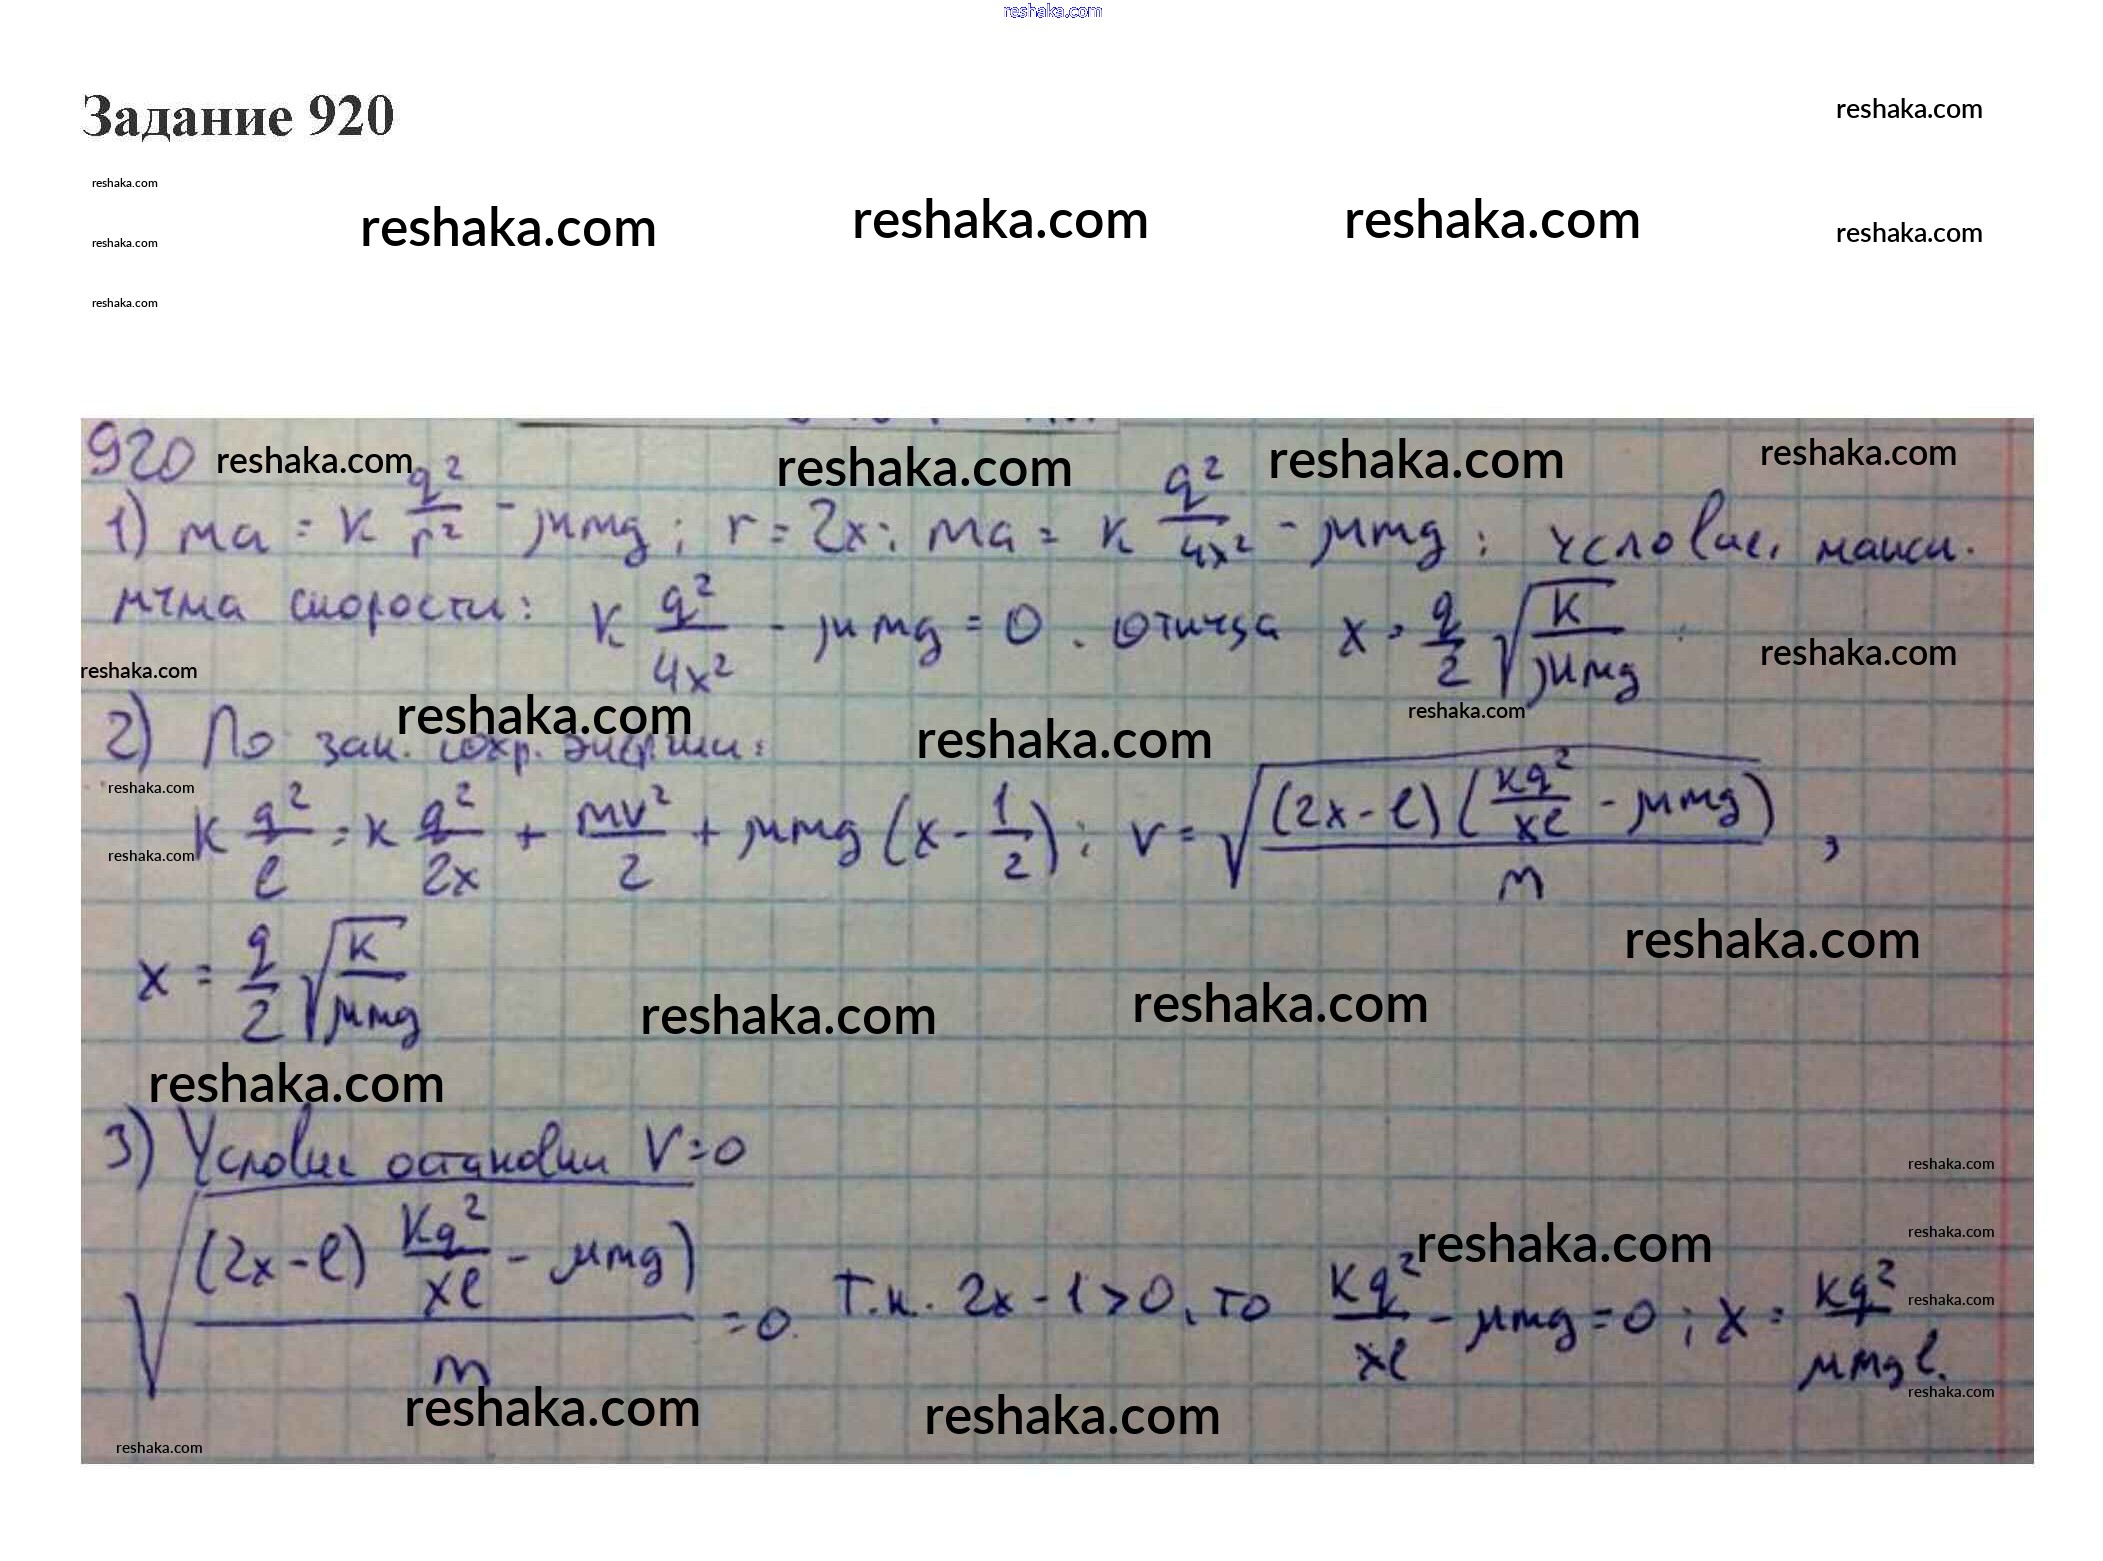 reshaka.com
Задание 920
reshaka.com
reshaka.com
reshaka.com reshaka.com reshaka.com reshaka.com
reshaka.com
reshaka.com
920 reshaka.com reshaka.com reshaka.com reshaka.com
1) ma = k q²/r² - μmg; r = 2x; ma = k q²/4x² - μmg; условие макси-
мума скорости: k q²/4x² - μmg = 0. отсюда x = q/2 √(k/μmg)
reshaka.com reshaka.com
reshaka.com reshaka.com reshaka.com
2) По зак. сохр. энергии:
reshaka.com
k q²/l = k q²/2x + mv²/2 + μmg (x - 1/2); v = √((2x-l)(kq²/xl - μmg)/m),
reshaka.com
x = q/2 √(k/μmg)
reshaka.com
reshaka.com reshaka.com
reshaka.com
3) Условие остановки V=0
reshaka.com
√((2x-l) kq²/xl - μmg)/m) = 0. Т.к. 2x-1>0, то kq²/xl - μmg = 0; x = kq²/μmgl.
reshaka.com reshaka.com
reshaka.com
reshaka.com reshaka.com reshaka.com
reshaka.com